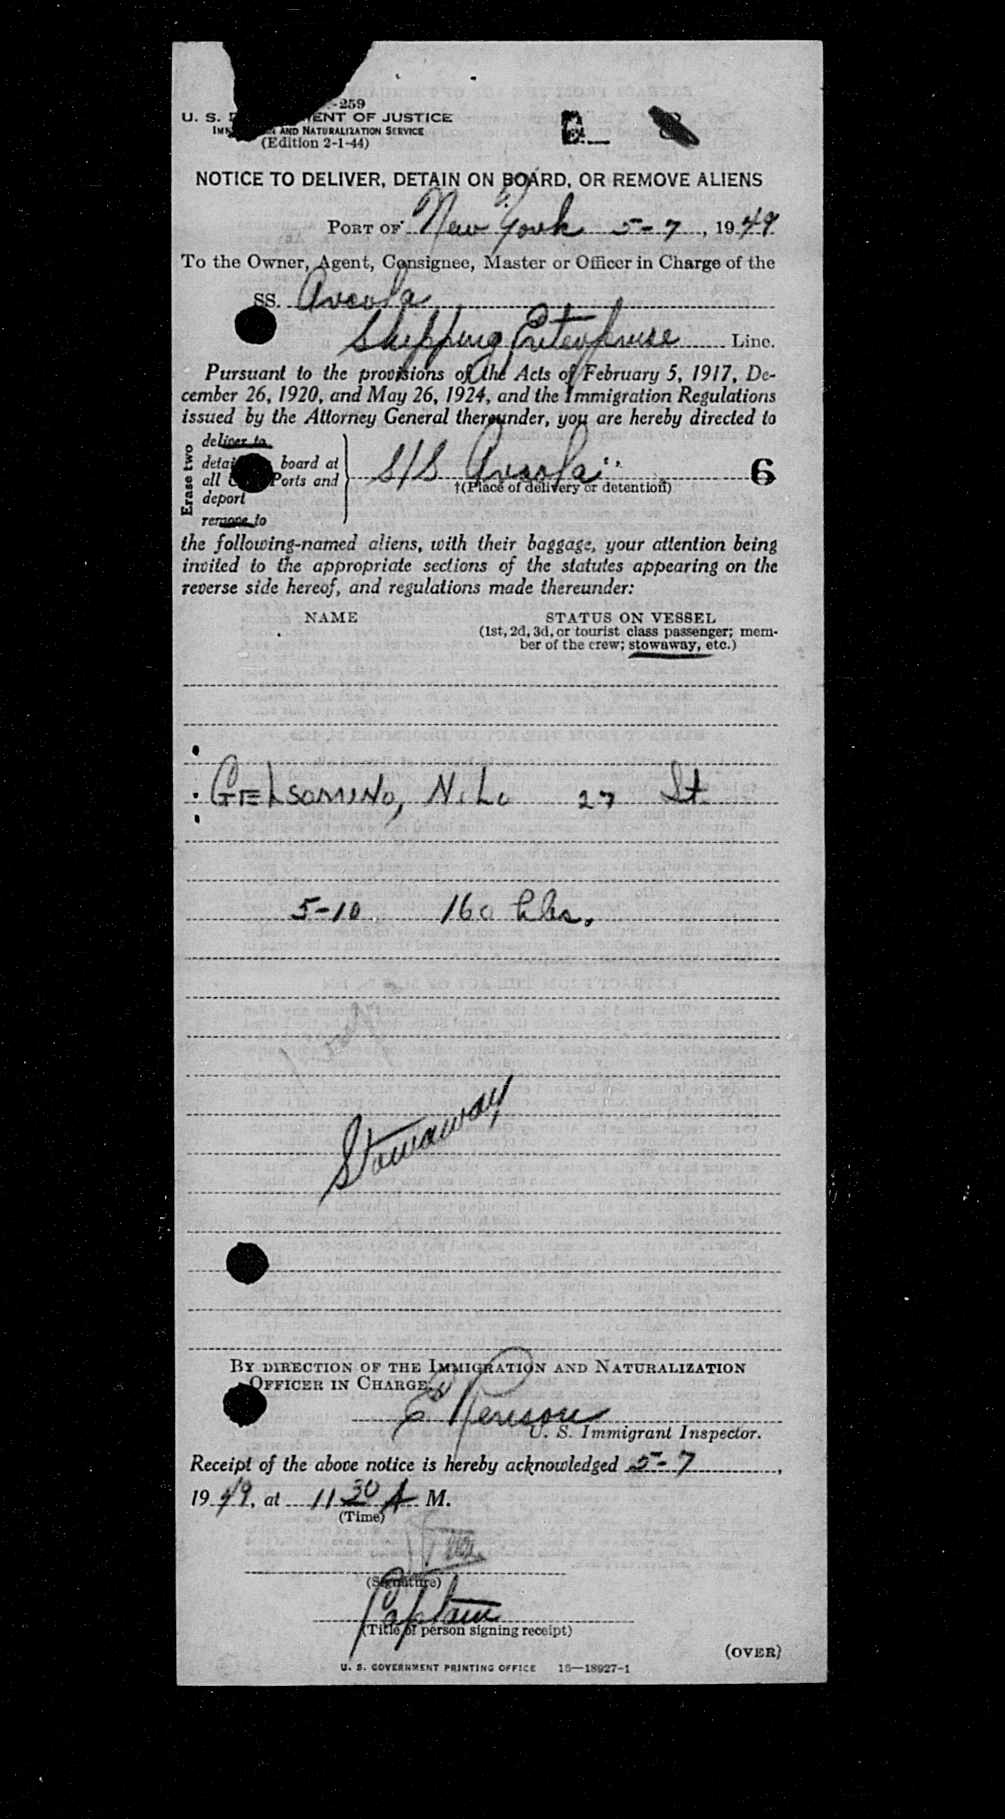 -259
U. S. D ENT OF JUSTICE
IM N AND NATURALIZATION SERVICE
(Edition 2-1-44)
NOTICE TO DELIVER, DETAIN ON BOARD, OR REMOVE ALIENS
PORT OF New York 5-7, 1949
To the Owner, Agent, Consignee, Master or Officer in Charge of the
SS. Arcola
Shipping Enterprise Line.
Pursuant to the provisions of the Acts of February 5, 1917, De-
cember 26, 1920, and May 26, 1924, and the Immigration Regulations
issued by the Attorney General thereunder, you are hereby directed to
Erase two
deliver to
detai board at
all Ports and
deport
remove to
S/S Arcola 6
†(Place of delivery or detention)
the following-named aliens, with their baggage, your attention being
invited to the appropriate sections of the statutes appearing on the
reverse side hereof, and regulations made thereunder:
NAME STATUS ON VESSEL
(1st, 2d, 3d, or tourist class passenger; mem-
ber of the crew; stowaway, etc.)
GELSOMINO, NiLo 27 St.
5-10 160 Lbs.
Stowaway
BY DIRECTION OF THE IMMIGRATION AND NATURALIZATION
OFFICER IN CHARGE:
U. S. Immigrant Inspector.
Receipt of the above notice is hereby acknowledged 5-7,
1949, at 11 30 A M.
(Time)
(Signature)
Captain
(Title of person signing receipt)
(OVER)
U. S. GOVERNMENT PRINTING OFFICE 16—18927-1